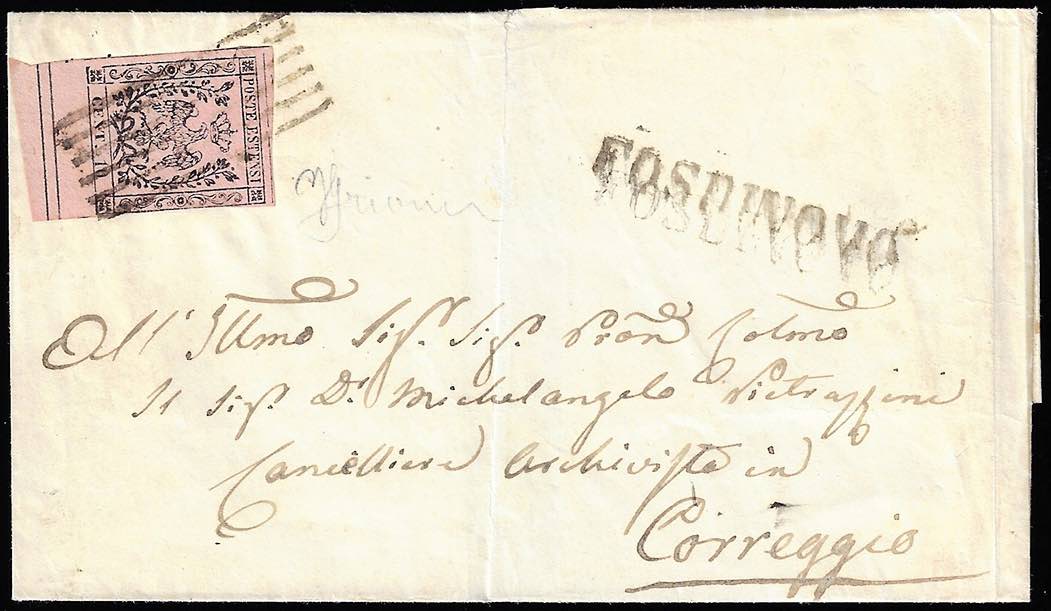 POSTE ESTENSI
CENT. 10
FOSDINOVO
All' Illmo Sigr. Sigr. Pron Colmo
Il Sigr. Dr. Michelangelo Pietrazzini
Cancelliere Archivista in
Correggio